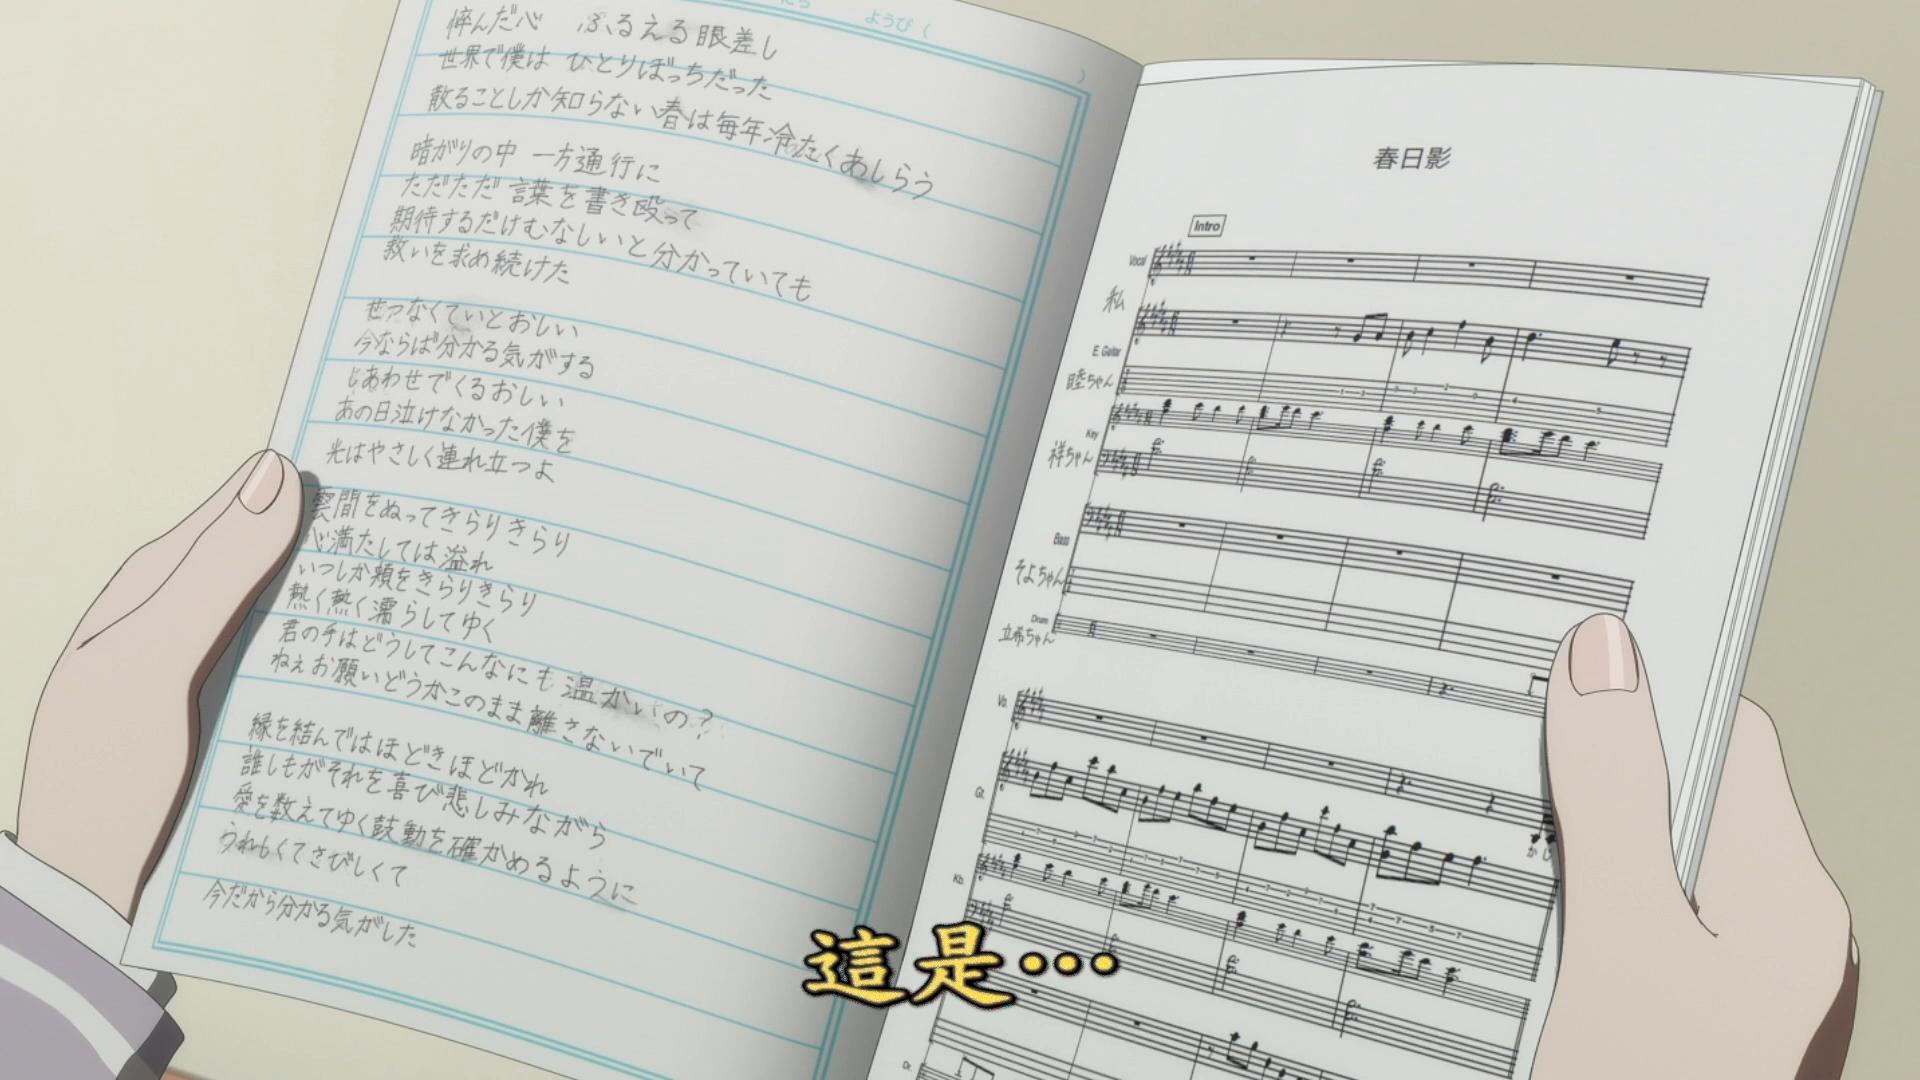 にち　ようび (　)
悴んだ心　ふるえる眼差し
世界で僕は　ひとりぼっちだった
散ることしか知らない春は毎年冷たくあしらう
暗がりの中　一方通行に
ただただ 言葉を書き殴って
期待するだけむなしいと分かっていても
救いを求め続けた
せつなくていとおしい
今ならば分かる気がする
しあわせでくるおしい
あの日泣けなかった僕を
光はやさしく連れ立つよ
雲間をぬってきらりきらり
心満たしては溢れ
いつしか頬をきらりきらり
熱く熱く濡らしてゆく
君の手はどうしてこんなにも温かいの?
ねえお願いどうかこのまま離さないでいて
縁を結んではほどきほどかれ
誰しもがそれを喜び悲しみながら
愛を数えてゆく鼓動を確かめるように
うれしくてさびしくて
今だから分かる気がした
春日影
Intro
Vocal
私
E. Guitar
睦ちゃん
Key
祥ちゃん
Bass
そよちゃん
Drum
立希ちゃん
Vo.
Gt.
か じ
Kb.
Dr.
這是…